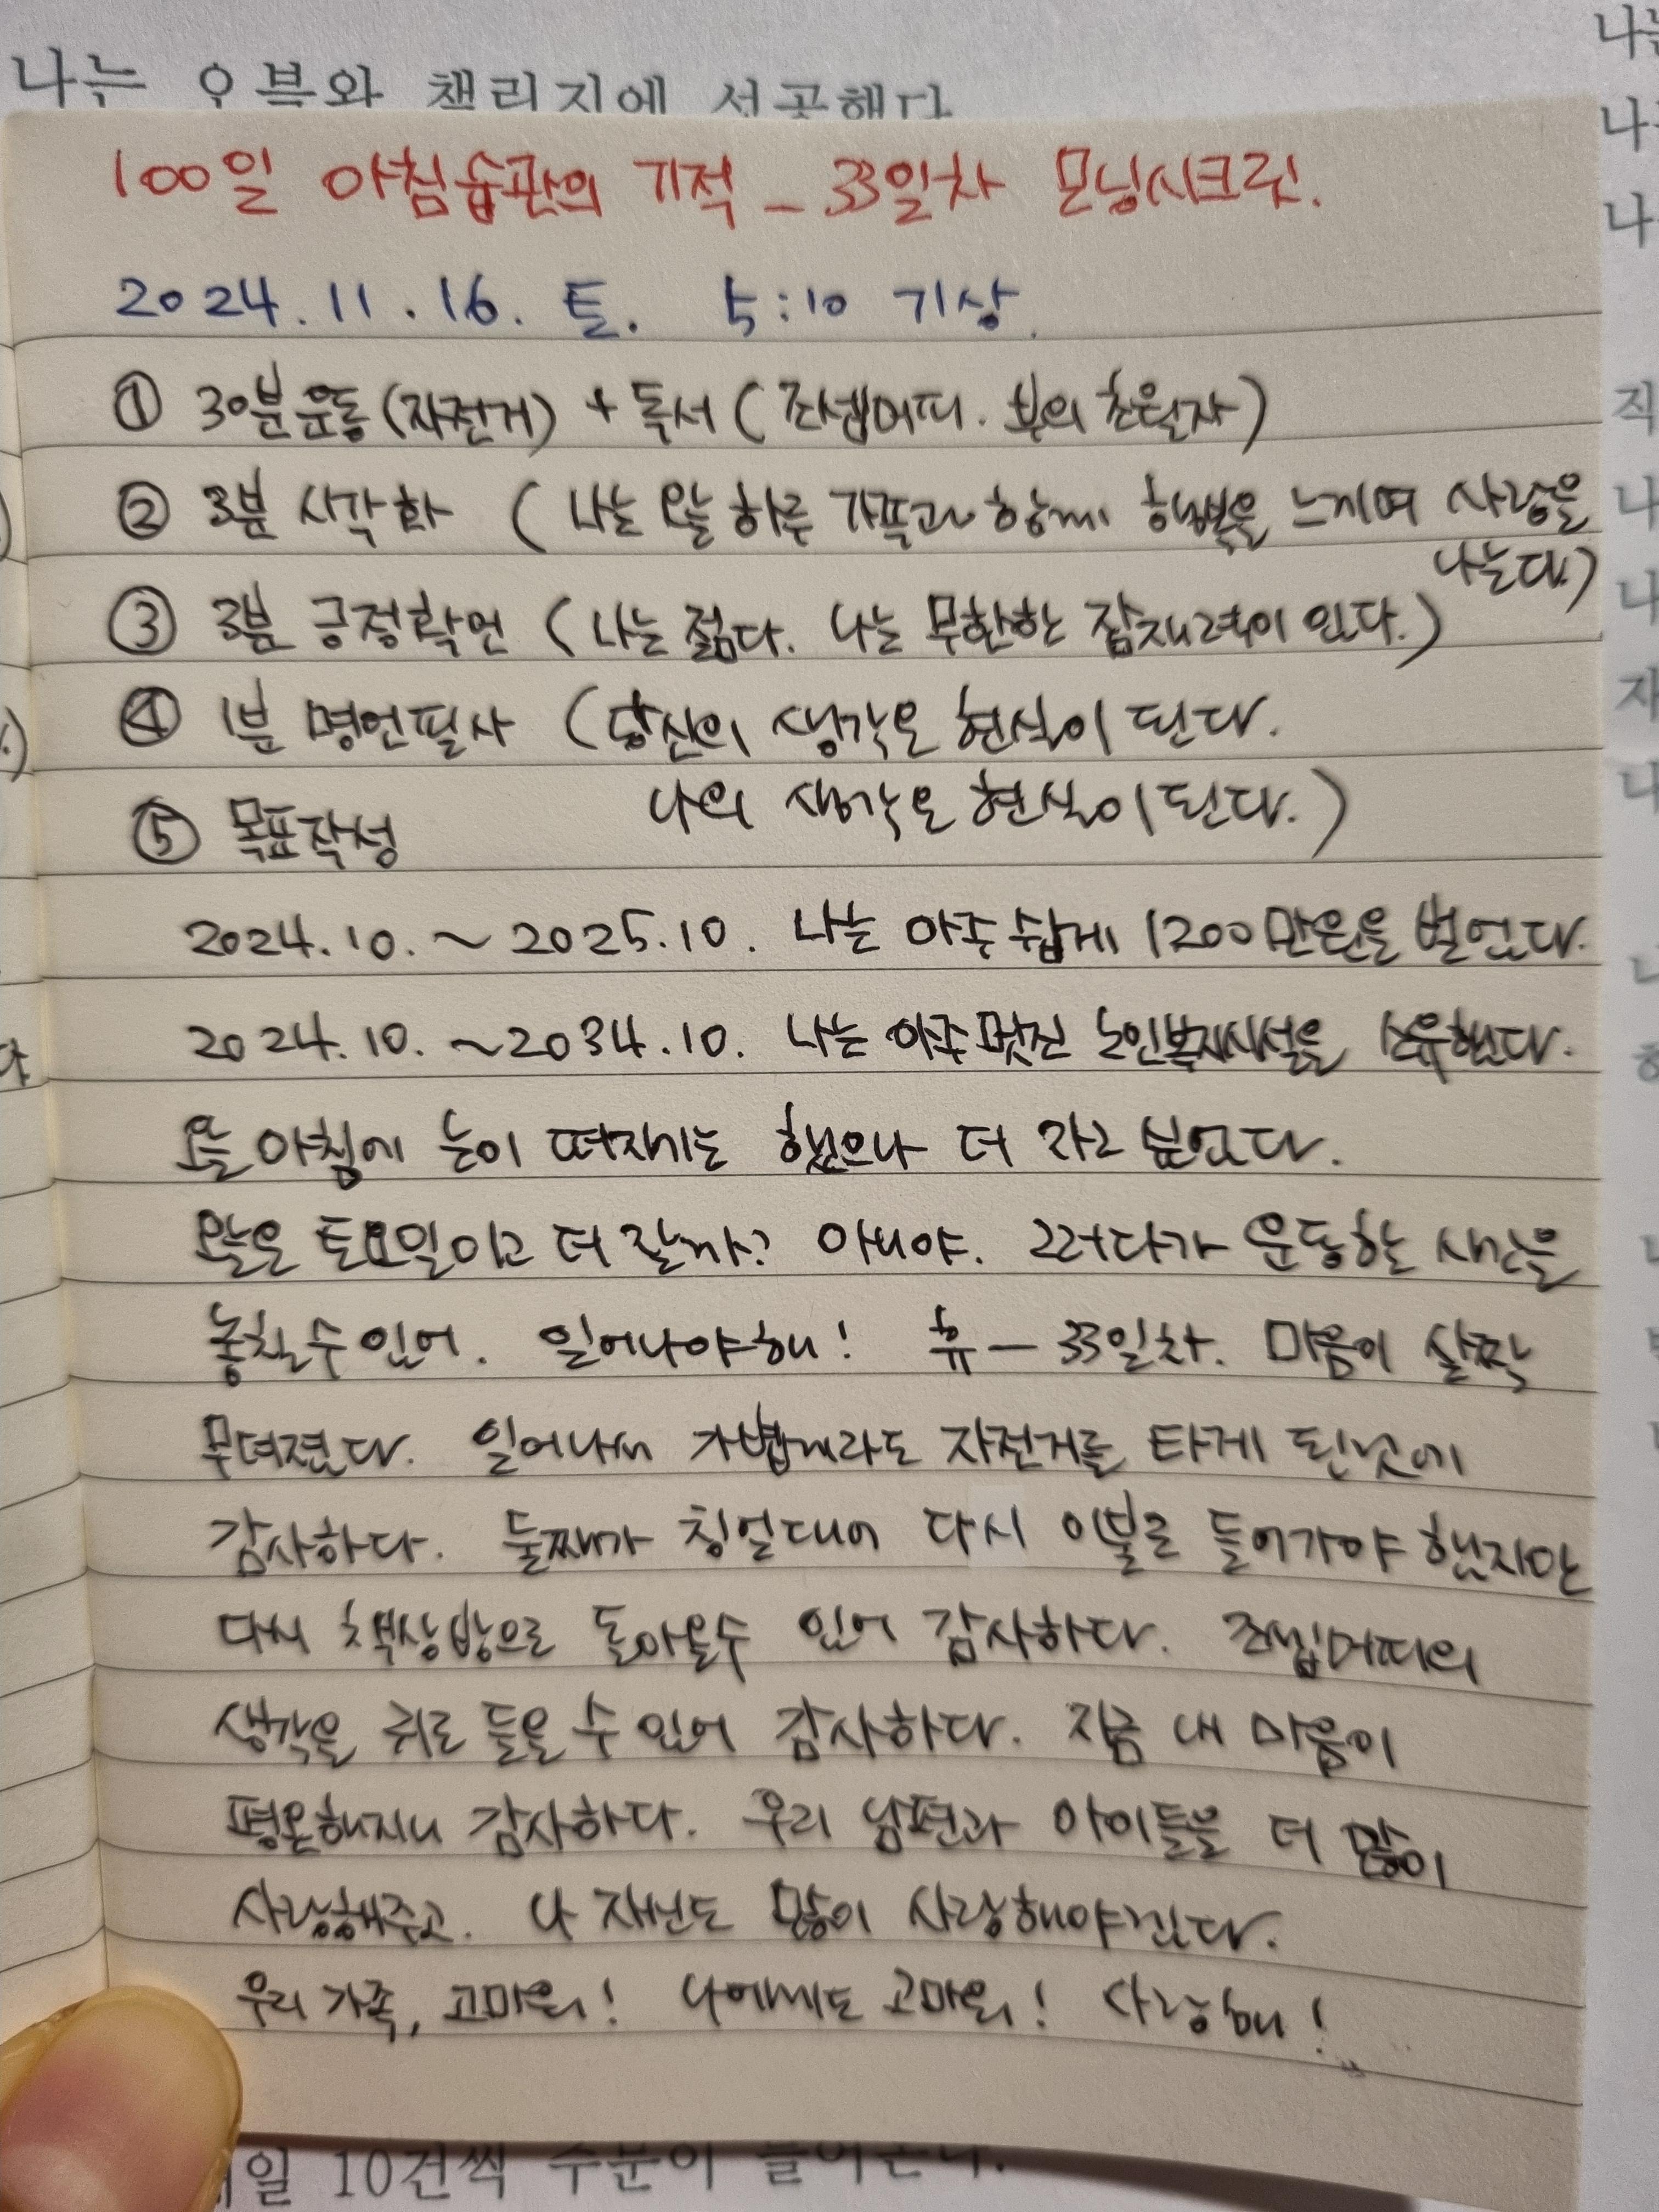 나는 오븐와 챌리지에 성공했다
100일 아침습관의 기적 - 33일차 모닝시크릿.
2024. 11. 16. 토. 5:10 기상.
① 30분운동(자전거) + 독서 (조셉머피. 부의 초월자)
② 3분 시각화 (나는 오늘 하루 가족과 함께 행복을 느끼며 사랑을
나눈다.)
③ 3분 긍정확언 (나는 젊다. 나는 무한한 잠재력이 있다.)
④ 1분 명언필사 (당신의 생각은 현실이 된다.
나의 생각은 현실이 된다.)
⑤ 목표작성
2024.10. ~ 2025.10. 나는 아주 쉽게 1200만원을 벌었다.
2024.10. ~ 2034.10. 나는 아주 멋진 노인복지시설을 소유했다.
오늘 아침에 눈이 떠지기는 했으나 더 자고 싶었다.
오늘은 토요일이고 더 잘까? 아니야. 그러다가 운동할 시간을
놓칠 수 있어. 일어나야 해! 휴 - 33일차. 마음이 살짝
무뎌졌다. 일어나서 가볍게라도 자전거를 타게 된것에
감사하다. 둘째가 칭얼대어 다시 이불로 들어가야 했지만
다시 책상방으로 돌아올수 있어 감사하다. 조셉머피의
생각을 귀로 들을 수 있어 감사하다. 지금 내 마음이
평온해지니 감사하다. 우리 남편과 아이들을 더 많이
사랑해주고. 나 자신도 많이 사랑해야겠다.
우리 가족, 고마워! 나에게도 고마워! 사랑해!
매일 10건씩 주문이 들어온다.